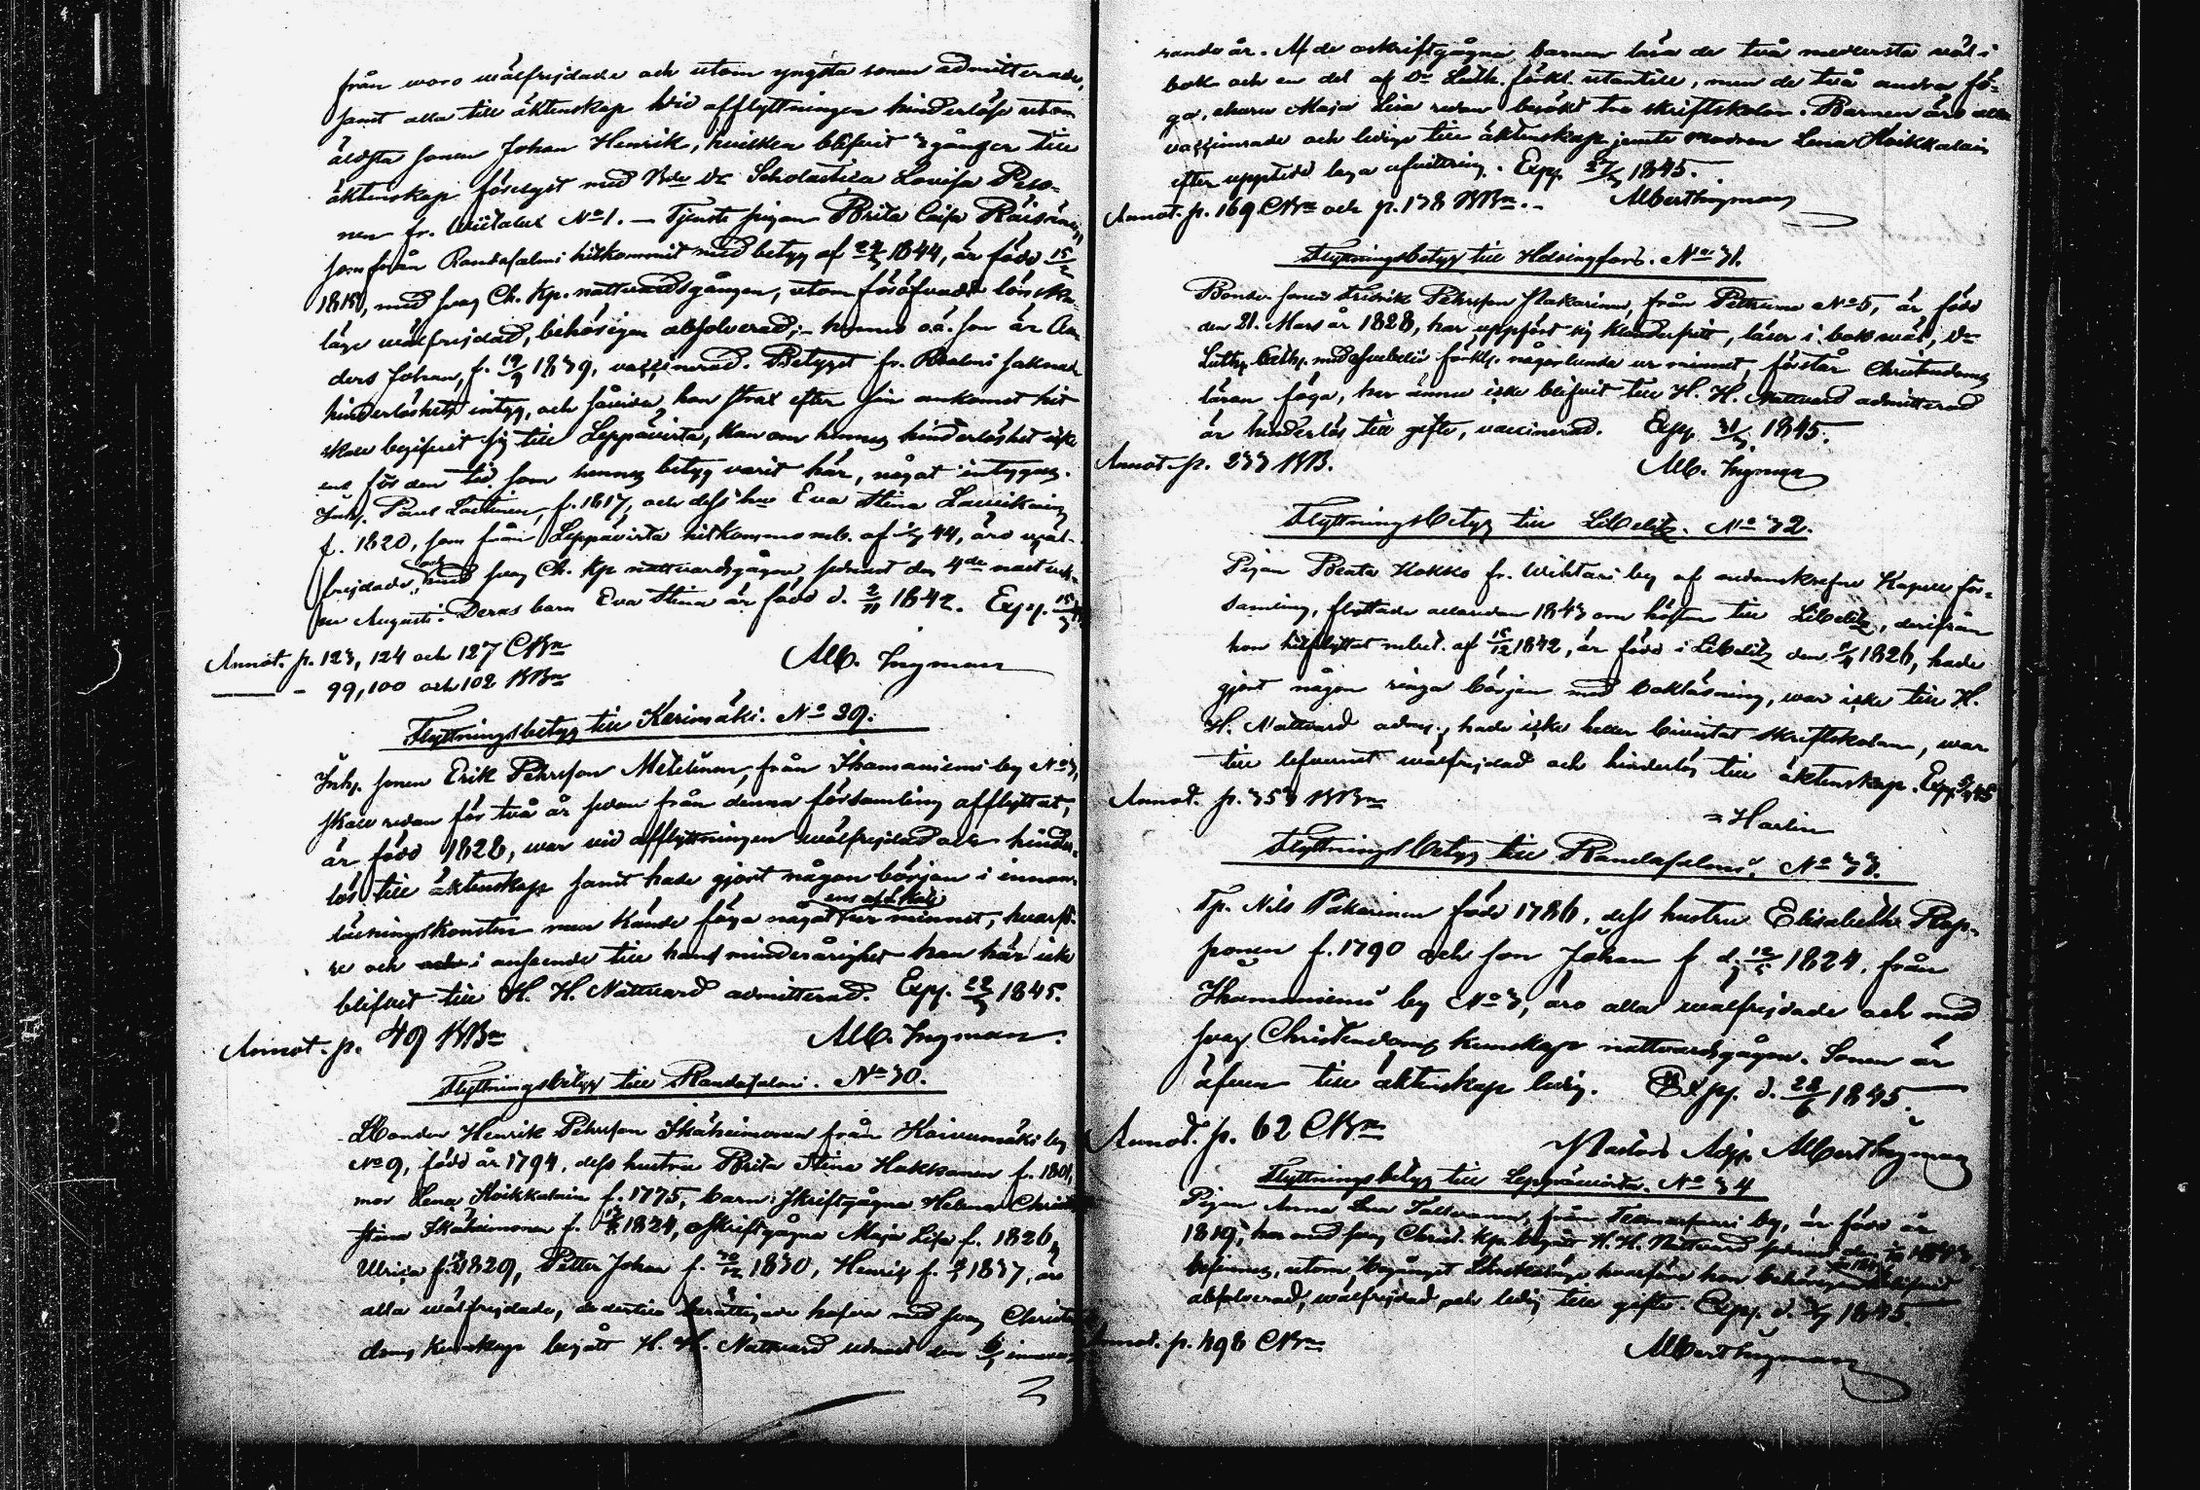 från woro wälfrejdade och utom yngsta sonen admitterade,
samt alla till äktenskap hvid afflyttningen hinderlöse utom
äldsta sonen Johan Henrik, hvilken blifvit 3 gånger till
äktenskap förelyst med Scholastica Lovisa Peso-
nen fr. No 1. — Tjenste pigan Brita Caisa Räisänen
som från Randasalmi hitkommit med betyg af 1844, är född 15/2
med svag Ch. kp. nattvardsgången, utom föröfvadt lönska-
läge wälfrejdad, behörigen absolverad; hennes oä. son är An-
ders Johan, f. 1839, vaccinerad. Betyget fr. saknade
hinderlöshets intyg, och hon strax efter sin ankomst hit
skall begifvit sig till Leppävirta, kan om hennes hinderlöshet icke
ens för den tid, som hennes betyg varit här, något intygas.
Inh. Paul f. 1817, och dess hu Eva Stina
f. 1820, som från Leppävirta hitkommo m. b. af 44, äro wäl-
frejdade, och med svag Ch. kp nattvardsgågne, sednast den 4de
Augusti. Deras barn Eva Stina är född d. 2/11 1842. Exp. 15/
Annot. p. 123, 124 och 127 CBn
— 99, 100 och 102 BBn
Alb. Ingman
Flyttningsbetyg till Kerimäki. No 29.
Inh. sonen Erik Pehrsson från Ihamaniemi by No 3,
skall redan för två år sedan från denna församling afflyttat,
är född 1828, war vid afflyttningen wälfrejdad och hinder-
lös till äktenskap samt hade gjort någon början i innan-
ens af A. Kate
läsningskonsten men kände föga något ur minnet, hvarföre
och i anseende till hans minderårighet han här icke
blifvit till H. H. Nattvard admitterad. Exp. 1845.
Annot. p. 49 BBn
Alb. Ingman.
Flyttningsbetyg till Randasalmi. No 30.
Bonden Henrik Pehrsson Ikäheimonen från Koivumäki by
No 9, född år 1794, dess hustru Brita Stina Hakkanen f. 1801,
mor Lena Koikkalain f. 1775, barn: skriftgågna Helena Christina
stina Ikäheimonen f. 1824, askriftgågna Maja Lisa f. 1826,
Ulrica f. 1829, Petter Johan f. 1830, Henrik f. 1837, äro
alla wälfrejdade, de dertill berättigade hafva med svag Christen-
doms kunskap begått H. H. Nattvard sednast den
rande år. Af de askriftgågna barnen läsa de två medlersta wäl i
bok och en del af Dr Luth. förkl. utantill, men de två andra fö-
ga, ehuru Maja Lisa redan besökt tre skriftskolor. Barnen äro alla
vaccinerade och ledige till äktenskap jemte modren Lena Koikkalain
efter upptedd laga afvittring. Exp. 1845.
Annot. p. 169 CBn och p. 138 BBn.
Albert Ingman
Flyttningsbetyg till Helsingfors. No 31.
Bonde sonen Fredrik Pehrsson Makarinen, från No 5, är född
den 21. Mars år 1828, har uppfört sig klanderfritt, läser i bok wäl, Dr
Luth. Cath. med förkl. någorlunda ur minnet, förstår Christendoms
läran föga, har ännu icke blifvit till H. H. Nattvard admitterad
är hinderlös till gifte, vaccinerad. Exp. 31/ 1845.
Annot. p. 233 BB.
Alb. Ingman
Flyttningsbetyg till Libelitz. No 32.
Pigan Beata Kokko fr. Wihtari by af ofvanskrefne Kapell för-
samling, flyttade allaredan 1843 om hösten till Libelitz, derifrån
hon hitflyttat m. bet. af 15/12 1842, är född i Libelitz den 1826, hade
gjort någon ringa början med bokläsning, war icke till H.
H. Nattvard adm., hade icke heller bivistat skriftskolan, war
till lefvernet wälfrejdad och hinderlös till äktenskap. Exp. 45
Annot. p. 353 BBn
Harlin
Flyttningsbetyg till Randasalmi. No 33.
Tp. Nils Pakarinen född 1786, dess hustru Elisabeth Rop-
ponen f. 1790 och son Johan f. d. 1824, från
Ihamaniemi by No 3, äro alla wälfrejdade och med
svag Christendoms kunskap nattvardsgågne. Sonen är
äfven till äktenskap ledig. Exp. d. 28/6 1845.
Annot. p. 62 CBn
Pastors Adj. Albert Ingman
Flyttningsbetyg till Leppävirta. No 34
Pigan Anna Lisa från by, är född år
1819, har med svag Christ. kp. begått H. H. Nattvard sednast den
befinnes, utom begånget Lönskaläge hvarföre hon behörigen blifvit
absolverad, wälfrejdad och ledig till gifte. Exp. d. 1845.
Annot. p. 498 CBn
Albert Ingman